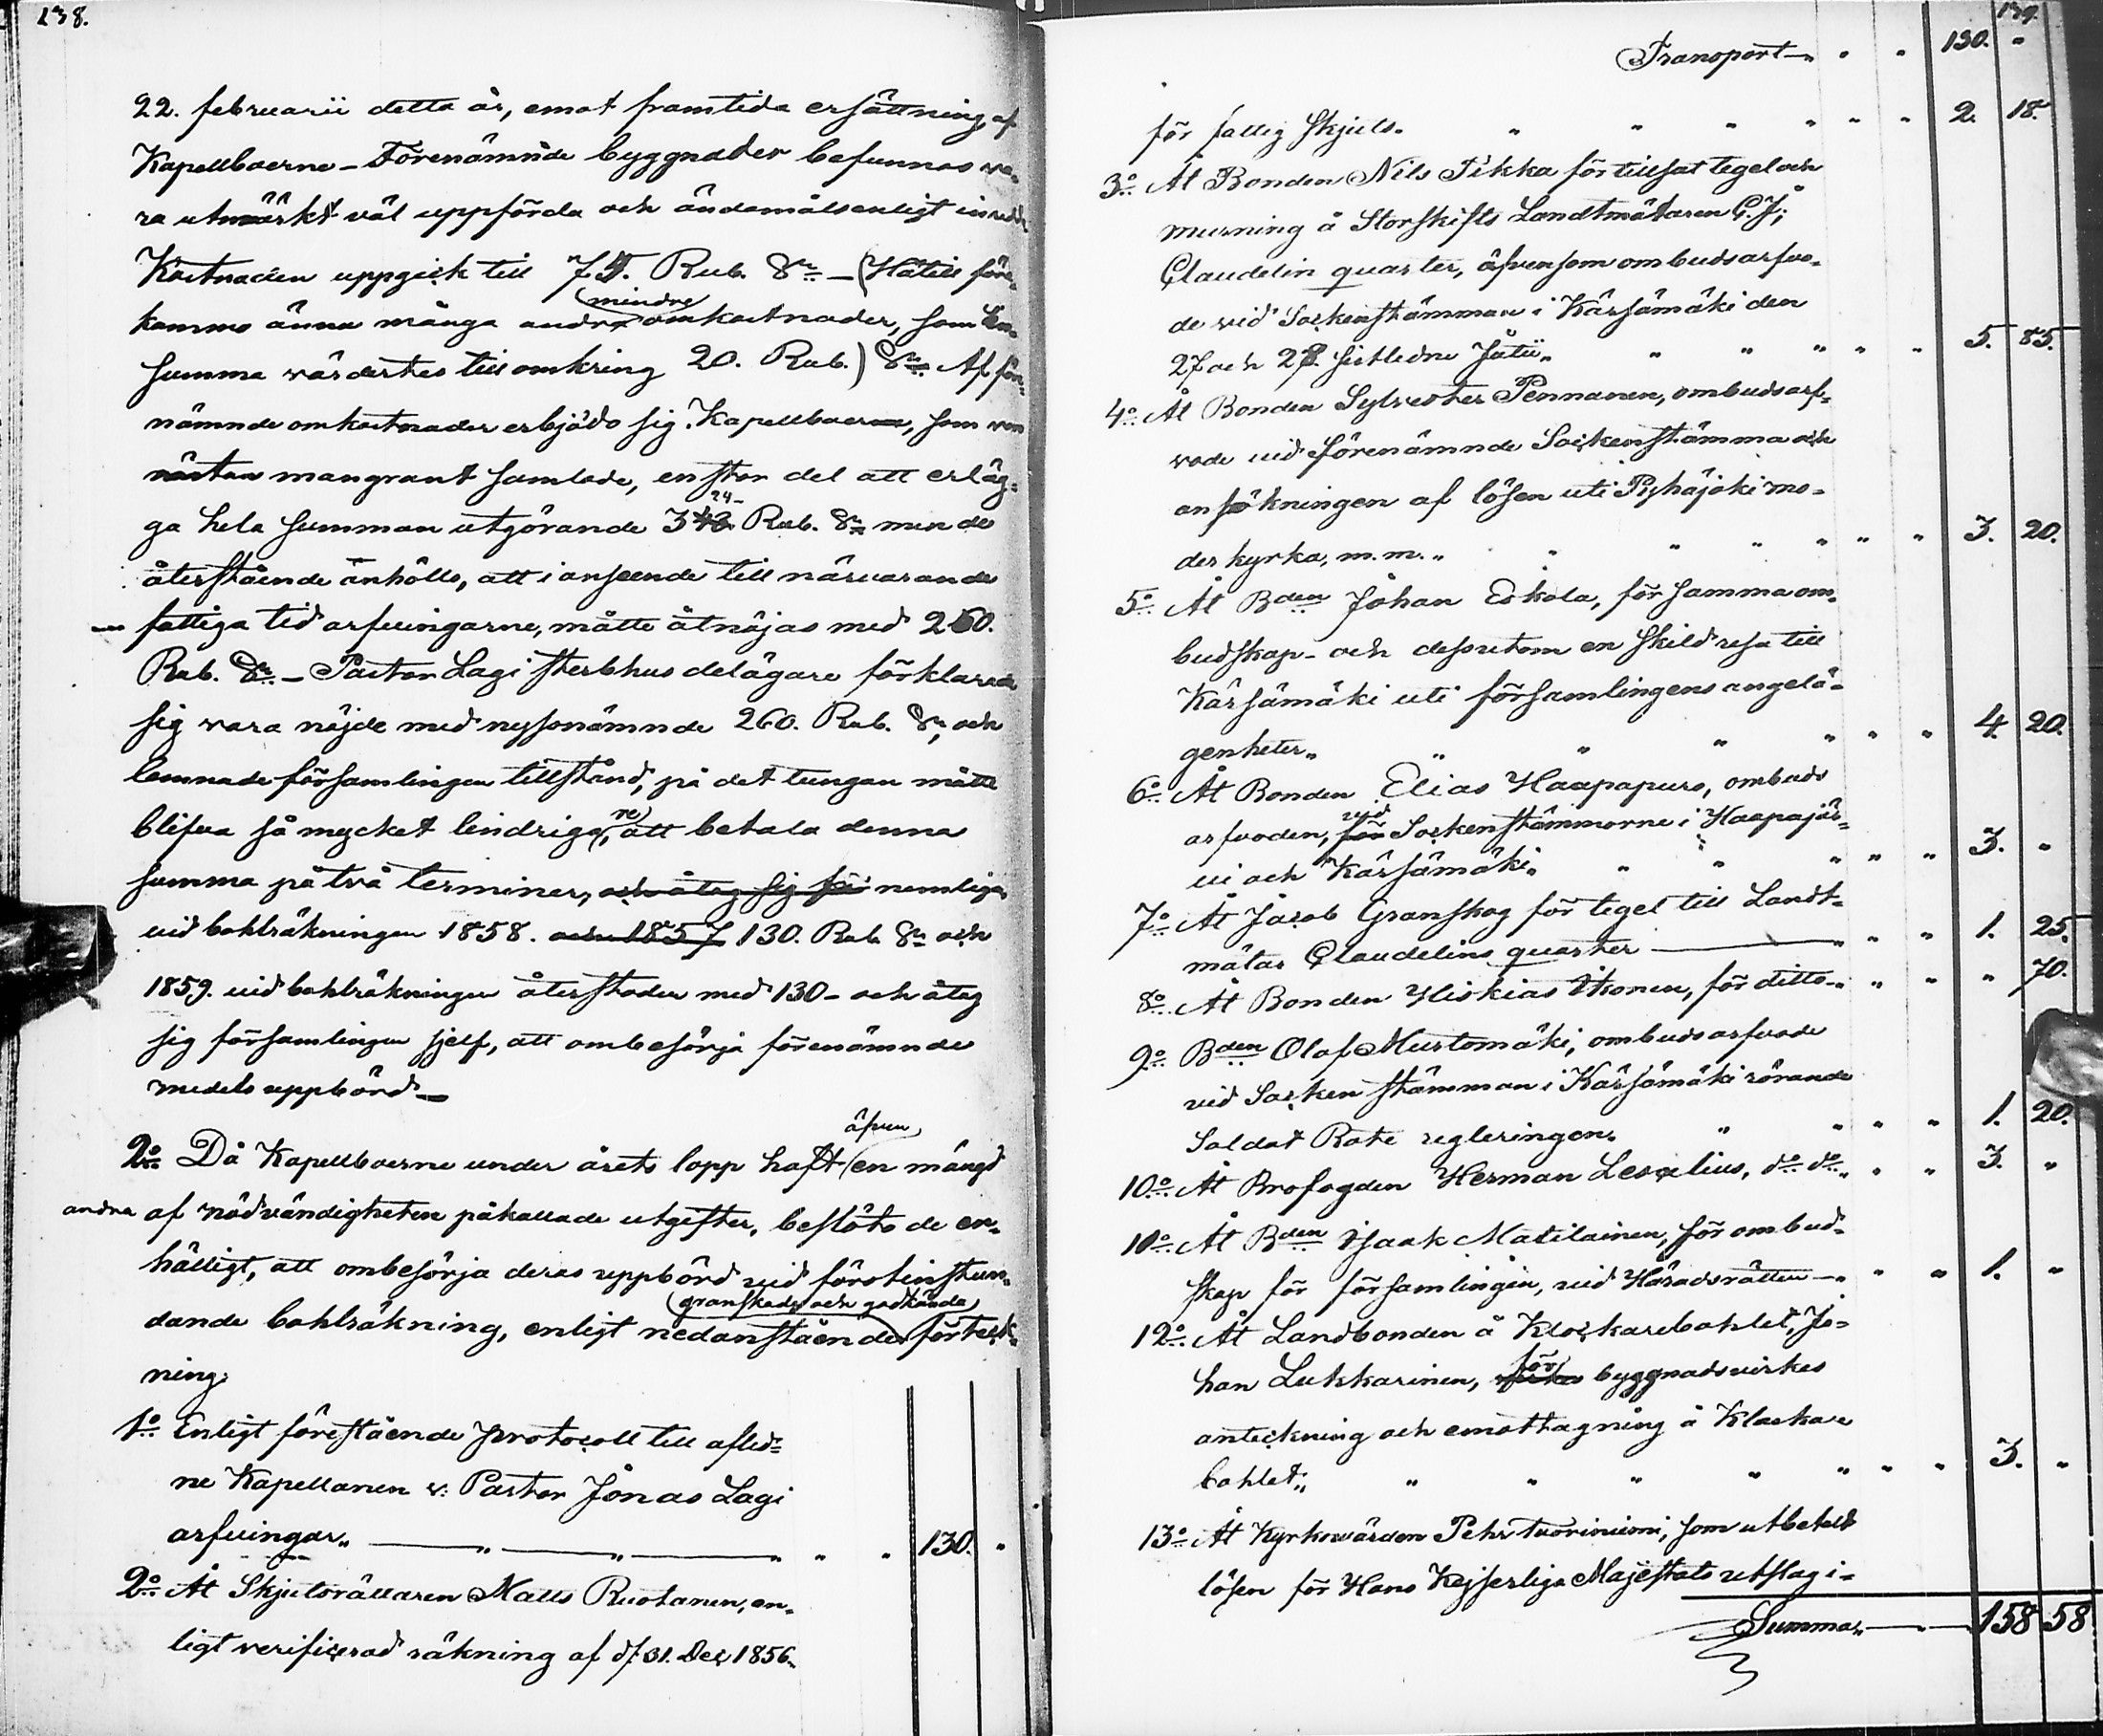 138.
22. februarii detta år, emot framtida ersättning af
Kapellboerne – Förenämnde byggnader befunnos va-
ra utmärkt väl uppförda och ändamålsenligt inredde
Kostnaden uppgick till 75. Rub. Sr – (Härtill före-
kommo ännu många andra (mindre) omkostnader, som en
summa värdertes till omkring 20. Rub.) Sr. Af för-
nämnde omkostnader erbjödo sig Kapellboerne, som voro
nästan mangrant samlade, en stor del att erläg-
ga hela summan utgörande 324 Rub. Sr men de
återstående änhöllo, att i anseende till närvarande
fattiga tid arfvingarne, måtte åtnöjas med 260.
Rub. Sr. – Pastor Lagi sterbhus delägare förklarade
sig vara nöjde med nyssnämnde 260. Rub. Sr, och
lemnade församlingen tillstånd, på det tungan måtte
blifva så mycket lindrigare, att betala denna
summa på två terminer, och åtog sig för nemligen
vid bohlräkningen 1858. och 1857 130. Rub Sr och
1859. vid bohlräkningen återstoden med 130 – och åtog
sig församlingen sjelf, att ombesörja förenämnde
medels uppbörd –
2o Då Kapellboerne under årets lopp haft (äfven) en mängd
andra af nödvändigheten påkallade utgifter, beslöto de en-
hälligt, att ombesörja deras uppbörd vid förstinstun-
dande bohlräkning, enligt nedanstående (granskade och godkända) förteck-
ning:
1o Enligt föreståendе protocoll till afled-
ne Kapellanen v. Pastor Jonas Lagi
arfvingar „ „ „ „ „ „ 130. „
2o Åt Skjutsrättaren Matts Ruotanen, en-
ligt verificerad räkning af d. 31. Dec 1856.
139.
Transport „ „ „ 130. „
för fattig skjuts. „ „ „ „ „ „ 2. 18.
3o Åt Bonden Nils Pikka för tillsat tegel och
murning å Storskifts Landtmätaren C. J.
Claudelin quarter, äfvensom ombudsarfvo-
de vid Sockenstämman i Kärsämäki den
27 och 28. sistledne Julii „ „ „ „ „ „ 5. 85.
4o Åt Bonden Sylvester Pennanen, ombudsarf-
vode vid förenämnde Sockenstämma och
ansökningen af lösen uti Pyhäjoki mo-
der kyrka, m. m. „ „ „ „ „ „ „ 3. 20.
5o Åt Bden Johan Eskola, för samma om-
budskap – och dessutom en skild resa till
Kärsämäki uti församlingens angelä-
genheter „ „ „ „ „ „ „ 4. 20.
6o Åt Bonden Elias Haapapuro, ombuds
arfvoden, för vid Sockenstämmorne i Haapajär-
vi och Kärsämäki „ „ „ „ „ „ 3. „
7o Åt Jacob Granskog för tegel till Landt-
mätar Claudelins quarter – „ „ „ 1. 25.
8o Åt Bonden Hiskias Itkonen, för ditto „ „ „ „ 70.
9o Bden Olof Mustomäki, ombudsarfvode
vid Sockenstämman i Kärsämäki rörande
Soldat Rote regleringen. „ „ „ „ 1. 20.
10o Åt Brofogden Herman Lesælius, do do „ „ „ 3. „
10o Åt Bden Isaak Matilainen, för ombud-
skap för församlingen, vid Häradsrätten – „ „ „ 1. „
12o Åt Landbonden å Klockarebohlet, Jo-
han Lukkarinen, för byggnadsvirkes
anteckning och emottagning å Klockare
bohlet „ „ „ „ „ „ „ „ 3. „
13o Åt Kyrkovärden Pehr Tuoriniemi, som utbetalt
lösen för Hans Kejserliga Majestäts utslag i-
Summa „ 158 58